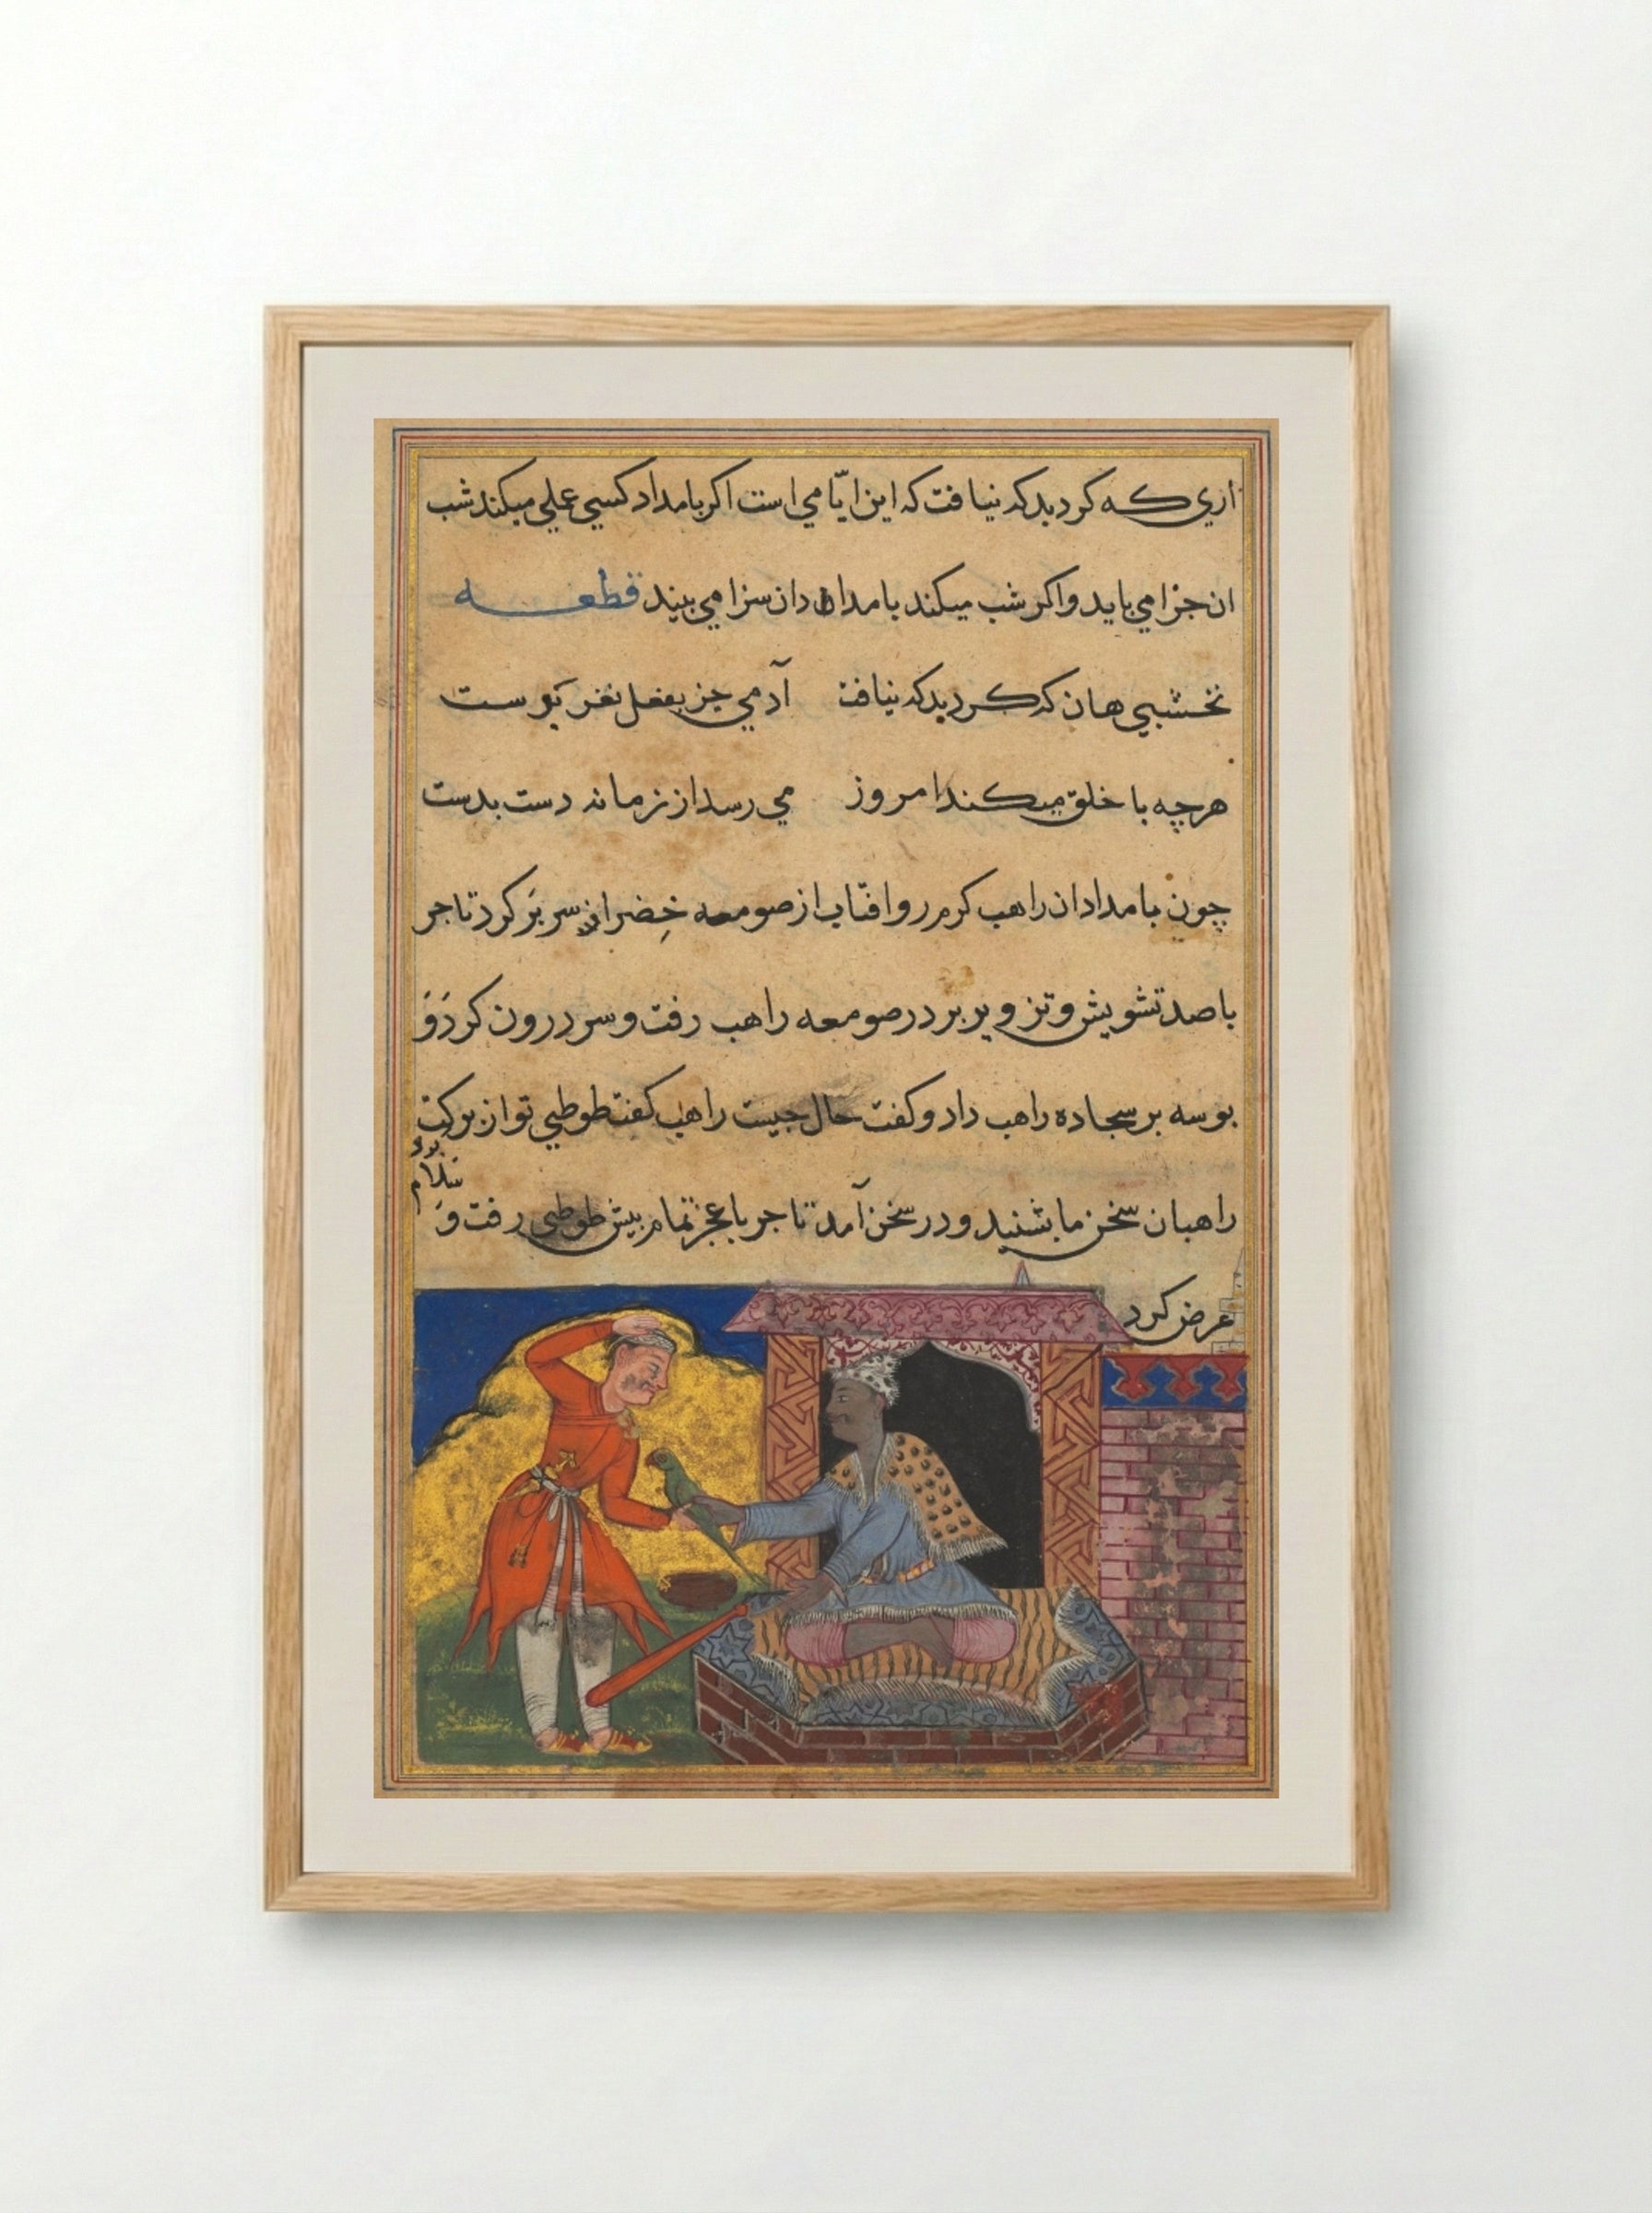 اري که کرد بد که نیافت که این ایّامي است اکر بامداد کسي عملي میکند شب
ان جزا مي یابد واکر شب میکند بامدادان سزا مي بیند قطعه
نخشبي هان که کرد بد که نیافت آدمي جز بفعل نغز نرست
هرچه با خلق میکند امروز مي رسد از زمانه دست بدست
چون بامدادان راهب کرم رو افتاب از صومعه خضرا سر بر کرد تاجر
با صد تشویش و تزویر بر در صومعه راهب رفت و سر درون کرد و
بوسه بر سجاده راهب داد و کفت حال چیست راهب کفت طوطي تو از برکت
راهبان سخن ما بشنید و در سخن آمد تاجر با عجز تمام پیش طوطي رفت و
سلام
عرض کرد